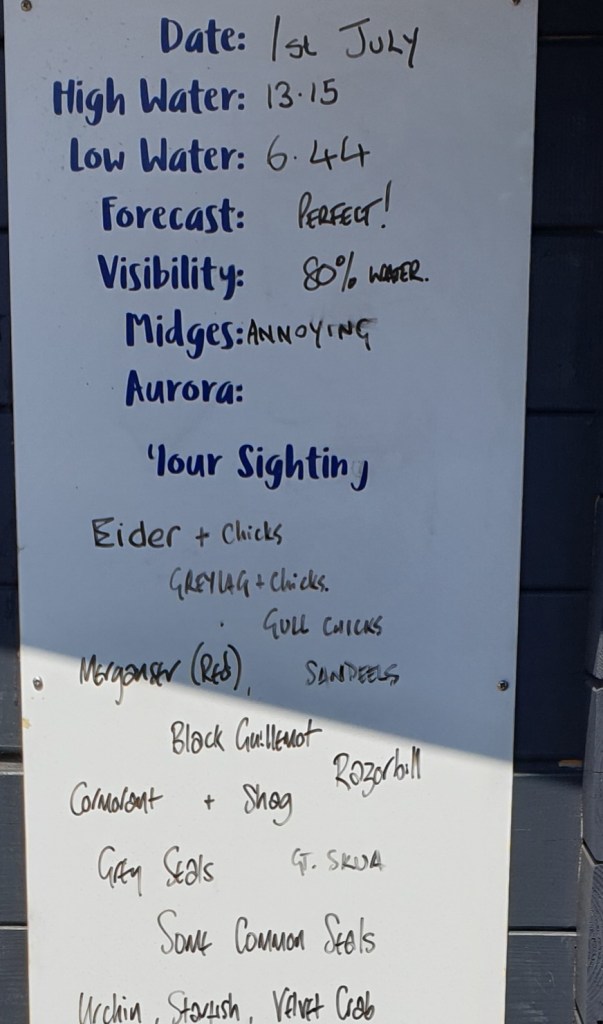 Date: 1st JULY
High Water: 13.15
Low Water: 6.44
Forecast: PERFECT!
Visibility: 80% WATER.
Midges: ANNOYING
Aurora:
Your Sighting
Eider + Chicks
GREYLAG + Chicks.
GULL CHICKS
Merganser (Red), SANDEELS
Black Guillemot
Razorbill
Cormorant + Shag
Grey Seals GT. SKUA
Some Common Seals
Urchin, Starfish, Velvet Crab